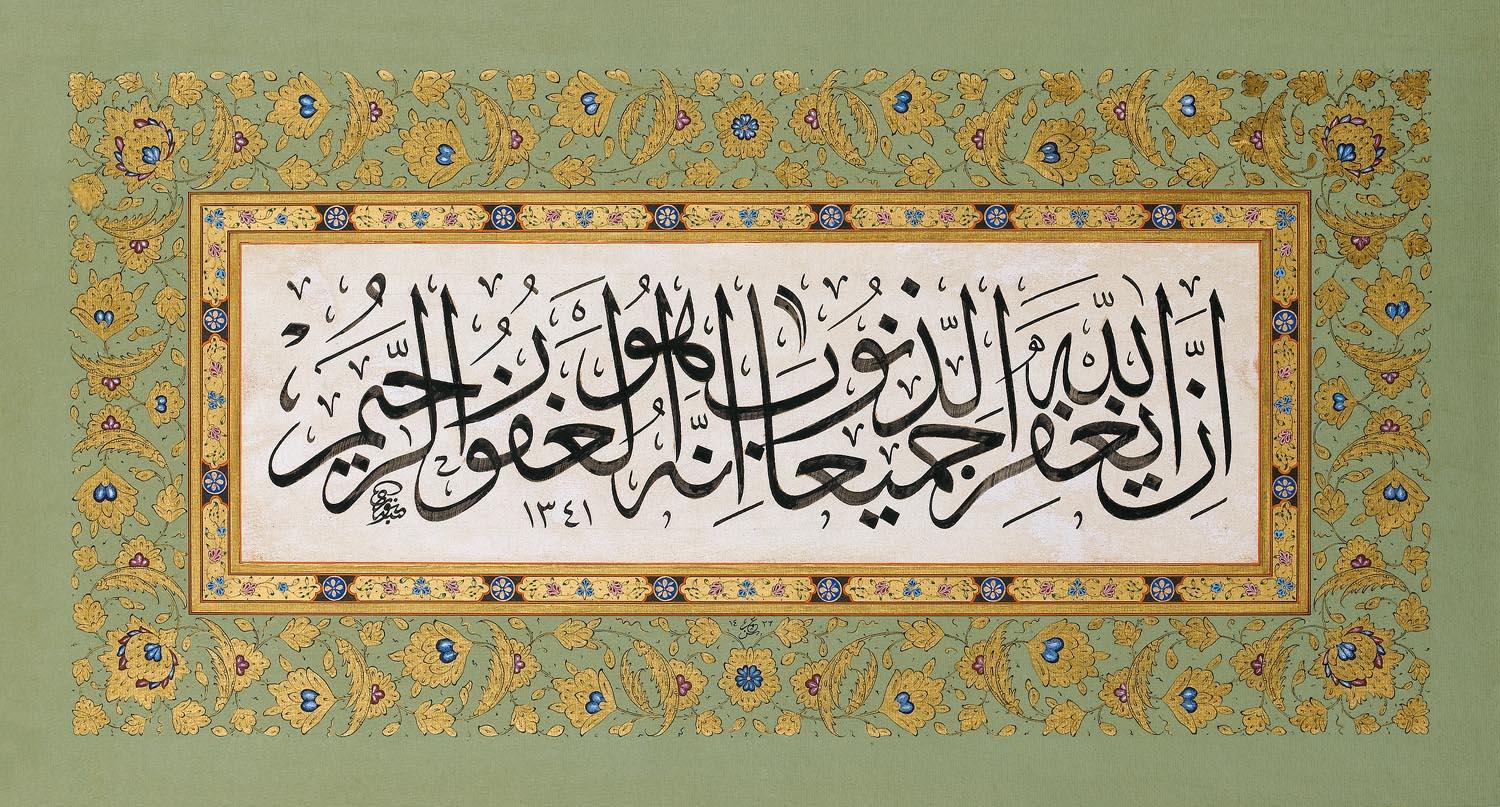 إِنَّ اللّٰهَ يَغْفِرُ الذُّنُوبَ جَمِيعًا إِنَّهُ هُوَ الْغَفُورُ الرَّحِيمُ
١٣٤١
١٤٢٢